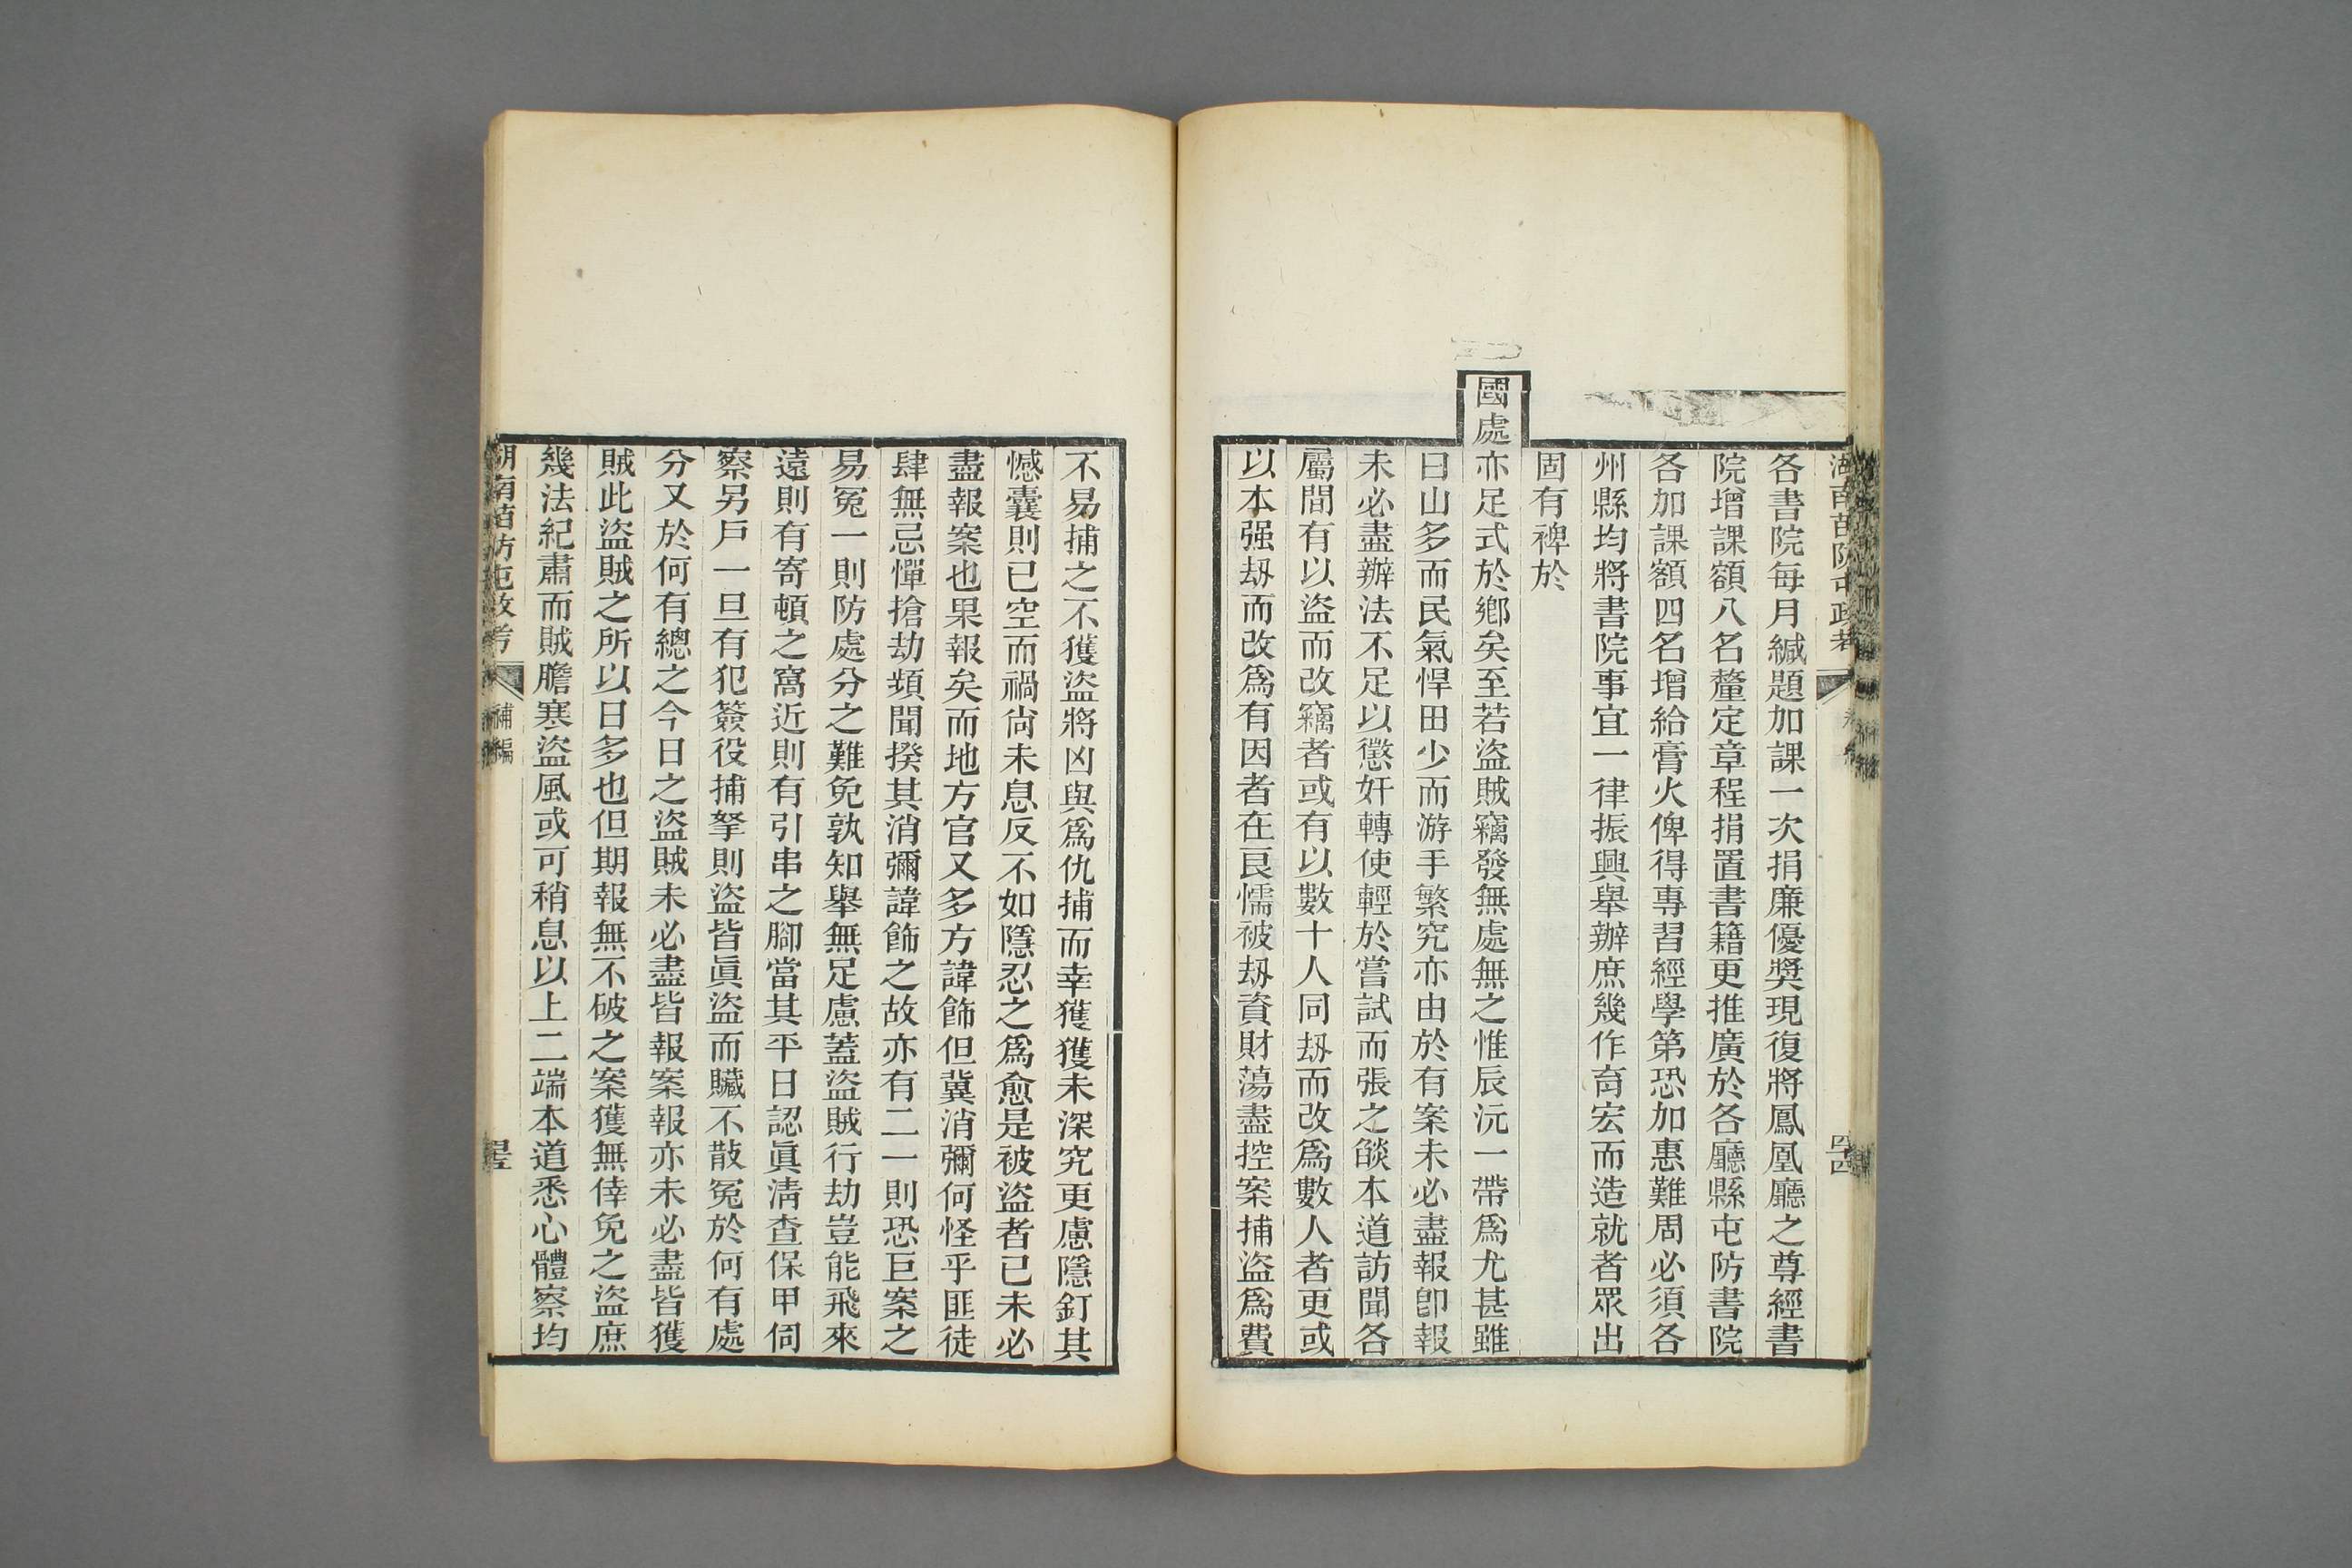 湖南苗防屯政考
各書院每月緘題加課一次捐廉優獎現復將鳳凰廳之尊經書
院增課額八名釐定章程捐置書籍更推廣於各廳縣屯防書院
各加課額四名增給膏火俾得專習經學第恐加惠難周必須各
州縣均將書院事宜一律振興舉辦庶幾作育宏而造就者眾出
固有裨於
國處亦足式於鄉矣至若盜賊竊發無處無之惟辰沅一帶爲尤甚雖
曰山多而民氣悍田少而游手繁究亦由於有案未必盡報卽報
未必盡辦法不足以懲奸轉使輕於嘗試而張之燄本道訪聞各
屬間有以盜而改竊者或有以數十人同刼而改爲數人者更或
以本强刼而改爲有因者在良懦被刼資財蕩盡控案捕盜爲費
不易捕之不獲盜將凶與爲仇捕而幸獲獲未深究更慮隱釘其
憾囊則已空而禍尙未息反不如隱忍之爲愈是被盜者已未必
盡報案也果報矣而地方官又多方諱飾但冀消彌何怪乎匪徒
肆無忌憚搶劫頻聞揆其消彌諱飾之故亦有二一則恐巨案之
易冤一則防處分之難免孰知舉無足慮蓋盜賊行劫豈能飛來
遠則有寄頓之窩近則有引串之腳當其平日認眞淸查保甲伺
察另戶一旦有犯簽役捕拏則盜皆眞盜而贜不敨冤於何有處
分又於何有總之今日之盜賊未必盡皆報案報亦未必盡皆獲
賊此盜賊之所以日多也但期報無不破之案獲無倖免之盜庶
幾法紀肅而賊膽寒盜風或可稍息以上二端本道悉心體察均
湖南苗防屯政考
補編